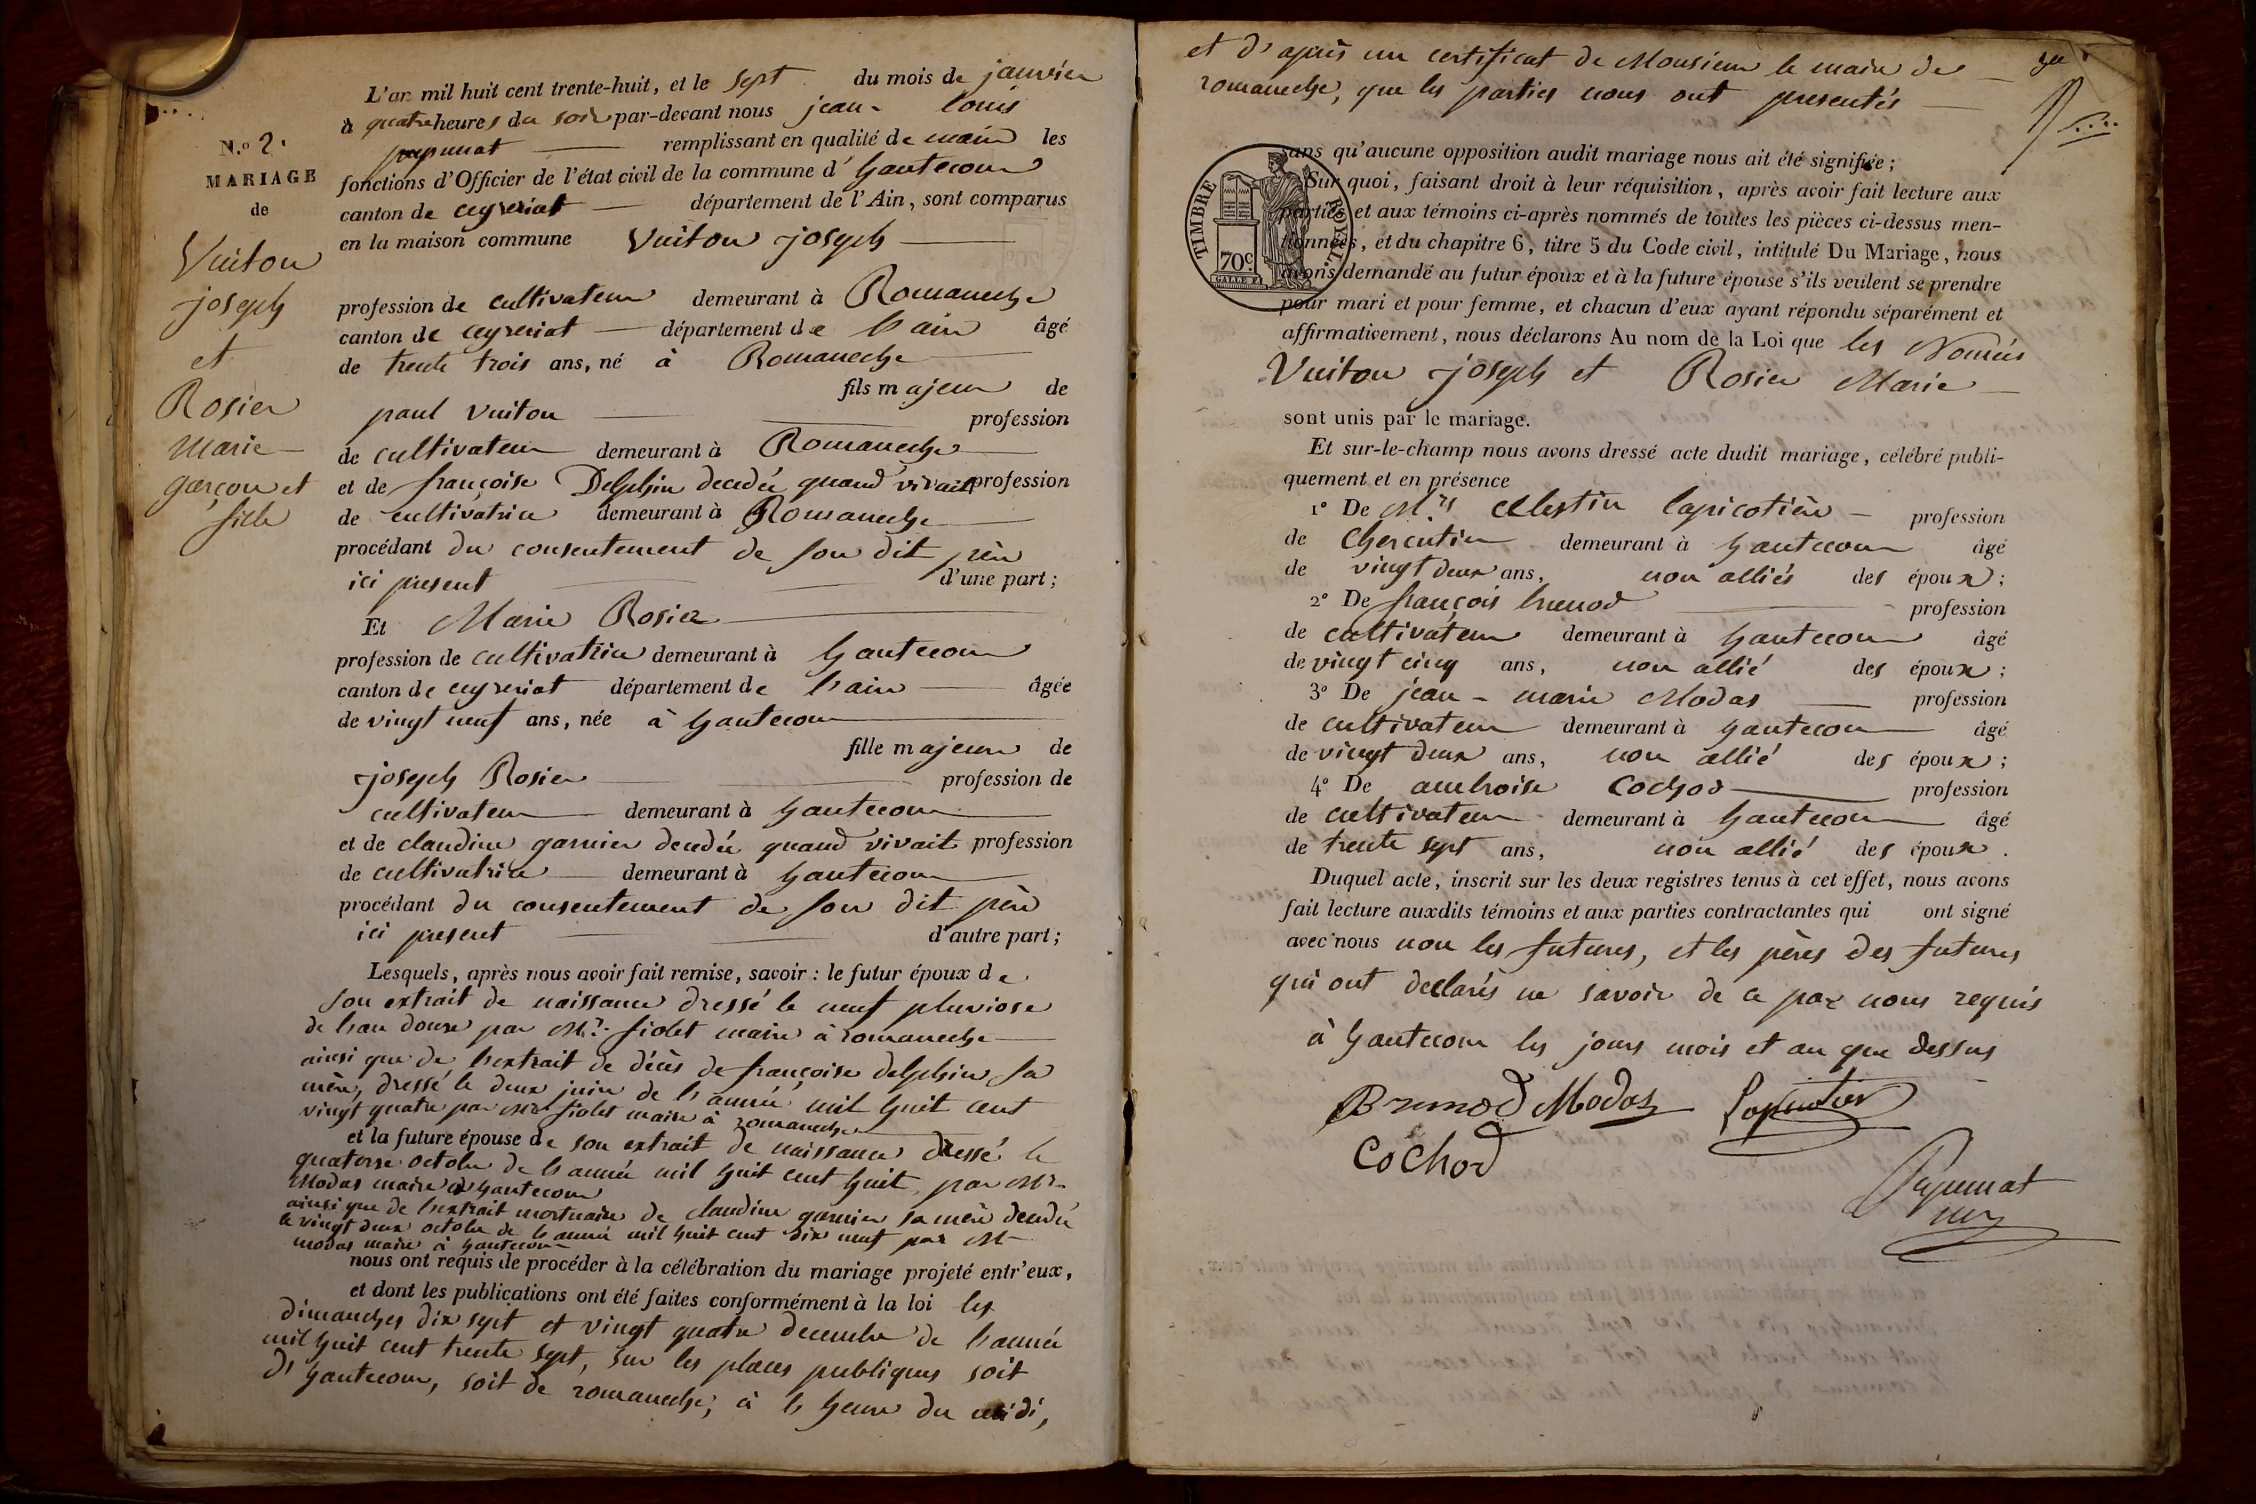 N.o 2.
MARIAGE
de
Vuitou
joseph
et
Rosier
Marie
garçon et
fille
L'an mil huit cent trente-huit, et le sept du mois de janvier
à quatre heures du soir par-devant nous jean-louis
remplissant en qualité de maire les
fonctions d'Officier de l'état civil de la commune d'hautecour
canton de ceyzeriat département de l'Ain, sont comparus
en la maison commune Vuitou joseph
profession de cultivateur demeurant à Romaneche
canton de ceyzeriat département de l'ain âgé
de trente trois ans, né à Romaneche
fils majeur de
paul Vuitou profession
de cultivateur demeurant à Romaneche
et de françoise Delphin decedée quand vivait profession
de cultivatrice demeurant à Romaneche
procédant du consentement de son dit père
ici present d'une part;
Et Marie Rosier
profession de cultivatrice demeurant à hautecour
canton de ceyzeriat département de l'ain âgée
de vingt neuf ans, née à hautecour
fille majeure de
joseph Rosier profession de
cultivateur demeurant à hautecour
et de claudine garnier decedée quand vivait profession
de cultivatrice demeurant à hautecour
procédant du consentement de son dit père
ici present d'autre part;
Lesquels, après nous avoir fait remise, savoir: le futur époux de
son extrait de naissance dressé le neuf pluviose
de l'an douze par Mr. fiolet maire à romaneche
ainsi que de l'extrait de décès de françoise delphin sa
mère, dressé le deux juin de l'année mil huit cent
vingt quatre par Mr fiolet maire à romaneche
et la future épouse de son extrait de naissance dressé le
quatorse octobre de l'année mil huit cent huit, par Mr
Modas maire à hautecour
ainsi que de l'extrait mortuaire de claudine garnier sa mère decedée
le vingt deux octobre de l'année mil huit cent dix neuf par Mr
modas maire à hautecour
nous ont requis de procéder à la célébration du mariage projeté entr'eux,
et dont les publications ont été faites conformément à la loi les
dimanches dix sept et vingt quatre decembre de l'année
mil huit cent trente sept, sur les places publiques soit
d'hautecour, soit de romaneche, à l'heure du midi,
et d'après un certificat de Monsieur le maire de
romaneche, que les parties nous ont presentés
TIMBRE ROYAL
70c
sans qu'aucune opposition audit mariage nous ait été signifiée;
Sur quoi, faisant droit à leur réquisition, après avoir fait lecture aux
parties et aux témoins ci-après nommés de toutes les pièces ci-dessus men-
tionnées, et du chapitre 6, titre 5 du Code civil, intitulé Du Mariage, nous
avons demandé au futur époux et à la future épouse s'ils veulent se prendre
pour mari et pour femme, et chacun d'eux ayant répondu séparément et
affirmativement, nous déclarons Au nom de la Loi que les Només
Vuitou joseph et Rosier Marie
sont unis par le mariage.
Et sur-le-champ nous avons dressé acte dudit mariage, célébré publi-
quement et en présence
1o De Mrs celestin lapicotière profession
de chercutier demeurant à hautecour âgé
de vingt deux ans, non alliés des époux;
2o De françois brunod profession
de cultivateur demeurant à hautecour âgé
de vingt cinq ans, non allié des époux;
3o De jean-marie Modas profession
de cultivateur demeurant à hautecour âgé
de vingt deux ans, non allié des époux;
4o De ambroise Cochod profession
de cultivateur demeurant à hautecour âgé
de trente sept ans, non allié des époux.
Duquel acte, inscrit sur les deux registres tenus à cet effet, nous avons
fait lecture auxdits témoins et aux parties contractantes qui ont signé
avec nous non les futures, et les pères des futures
qui ont declarés ne savoir de ce par nous requis
à hautecour les jours mois et an que dessus
Brunod Modas
Cochod